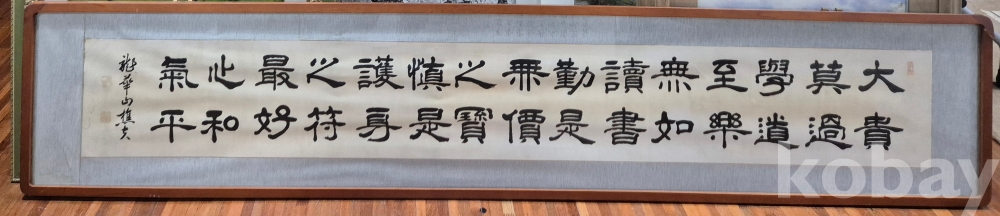 大貴
莫過
學道
至樂
無如
讀書
勤是
無價
之寶
慎是
護身
之符
最好
心和
氣平
華山樵夫
kobay